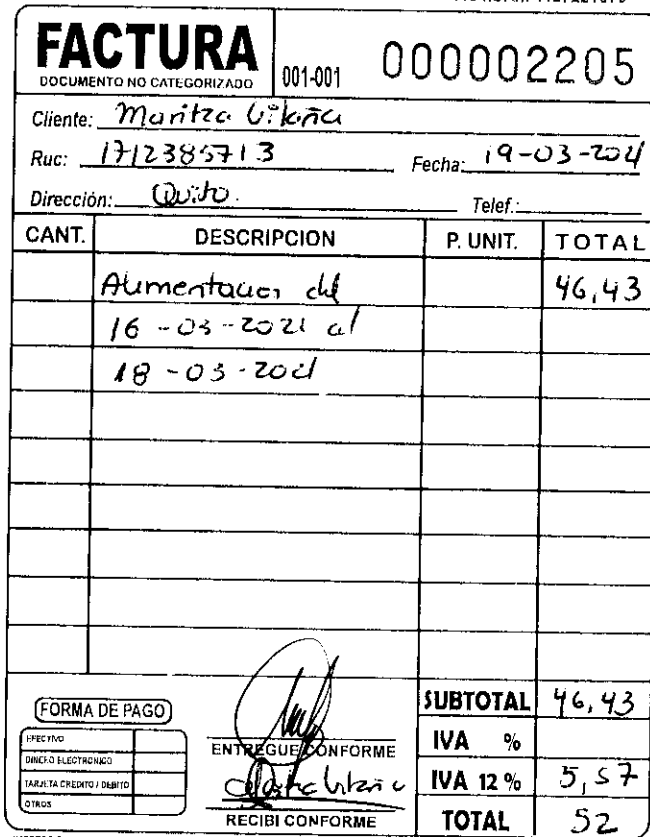 FACTURA
DOCUMENTO NO CATEGORIZADO
001-001
000002205
Cliente: Maritza Vilaña
Ruc: 1712385713 Fecha: 19-03-2021
Dirección: Quito. Telef.:
CANT. DESCRIPCION P. UNIT. TOTAL
Alimentacion del 46,43
16-03-2021 al
18-03-2021
FORMA DE PAGO
EFECTIVO
DINERO ELECTRONICO
TARJETA CREDITO / DEBITO
OTROS
ENTREGUE CONFORME
RECIBI CONFORME
SUBTOTAL 46,43
IVA %
IVA 12 % 5,57
TOTAL 52